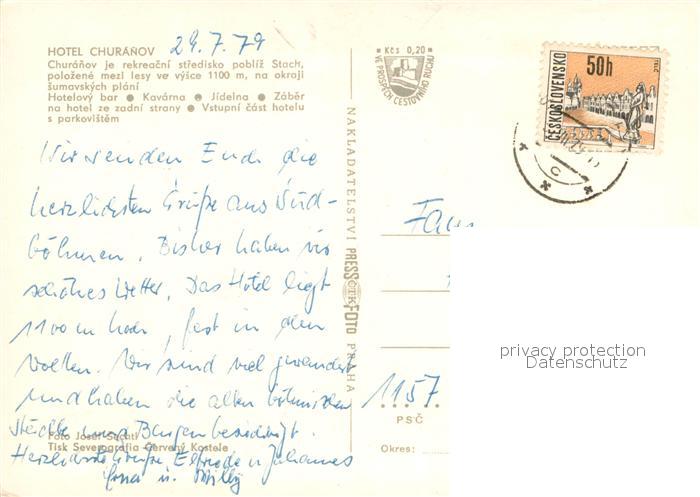 HOTEL CHURÁŇOV
29.7.79
Churáňov je rekreační středisko poblíž Stach,
položené mezi lesy ve výšce 1100 m, na okraji
šumavských plání
Hotelový bar ● Kavárna ● Jídelna ● Záběr
na hotel ze zadní strany ● Vstupní část hotelu
s parkovištěm
Wir senden Euch die
herzlichsten Grüße aus Süd-
böhmen. Bisher haben wir
schönes Wetter. Das Hotel liegt
1100 m hoch, fast in den
Wolken. Wir sind viel gewandert
und haben die alten böhmischen
Städte und Burgen besichtigt.
Herzlichste Grüße, Elfriede u. Johannes
u. Willy
Foto Josef
Tisk Severografia Červený Kostelec
NAKLADATELSTVÍ PRESSFOTO PRAHA
ČTK
Kčs 0,20
VE PROSPĚCH CESTOVNÍHO RUCHU
ČESKOSLOVENSKO
50h
TELČ
Fam
1157
PSČ
Okres:
privacy protection
Datenschutz